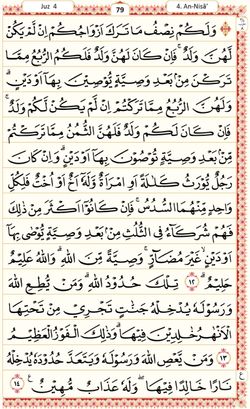 Juz 4
79
4. An-Nisā’
وَلَكُمْ نِصْفُ مَا تَرَكَ اَزْوَاجُكُمْ اِنْ لَّمْ يَكُنْ
لَّهُنَّ وَلَدٌ ۚ فَاِنْ كَانَ لَهُنَّ وَلَدٌ فَلَكُمُ الرُّبُعُ مِمَّا
تَرَكْنَ مِنْۢ بَعْدِ وَصِيَّةٍ يُّوْصِيْنَ بِهَاۤ اَوْ دَيْنٍ ؕ
وَلَهُنَّ الرُّبُعُ مِمَّا تَرَكْتُمْ اِنْ لَّمْ يَكُنْ لَّكُمْ وَلَدٌ ۚ
فَاِنْ كَانَ لَكُمْ وَلَدٌ فَلَهُنَّ الثُّمُنُ مِمَّا تَرَكْتُمْ
مِّنْۢ بَعْدِ وَصِيَّةٍ تُوْصُوْنَ بِهَاۤ اَوْ دَيْنٍ ؕ وَاِنْ كَانَ
رَجُلٌ يُّوْرَثُ كَلٰلَةً اَوِ امْرَاَةٌ وَّلَهٗۤ اَخٌ اَوْ اُخْتٌ فَلِكُلِّ
وَاحِدٍ مِّنْهُمَا السُّدُسُ ۚ فَاِنْ كَانُوْۤا اَكْثَرَ مِنْ ذٰلِكَ
فَهُمْ شُرَكَآءُ فِى الثُّلُثِ مِنْۢ بَعْدِ وَصِيَّةٍ يُّوْصٰى بِهَاۤ
اَوْ دَيْنٍ ۙ غَيْرَ مُضَآرٍّ ۚ وَصِيَّةً مِّنَ اللّٰهِ ؕ وَاللّٰهُ عَلِيْمٌ
حَلِيْمٌ ؕ ﴿١٢﴾ تِلْكَ حُدُوْدُ اللّٰهِ ؕ وَمَنْ يُّطِعِ اللّٰهَ
وَرَسُوْلَهٗ يُدْخِلْهُ جَنّٰتٍ تَجْرِىْ مِنْ تَحْتِهَا
الْاَنْهٰرُ خٰلِدِيْنَ فِيْهَا ؕ وَذٰلِكَ الْفَوْزُ الْعَظِيْمُ
﴿١٣﴾ وَمَنْ يَّعْصِ اللّٰهَ وَرَسُوْلَهٗ وَيَتَعَدَّ حُدُوْدَهٗ يُدْخِلْهُ
نَارًا خَالِدًا فِيْهَا ۪ وَلَهٗ عَذَابٌ مُّهِيْنٌ ﴿١٤﴾